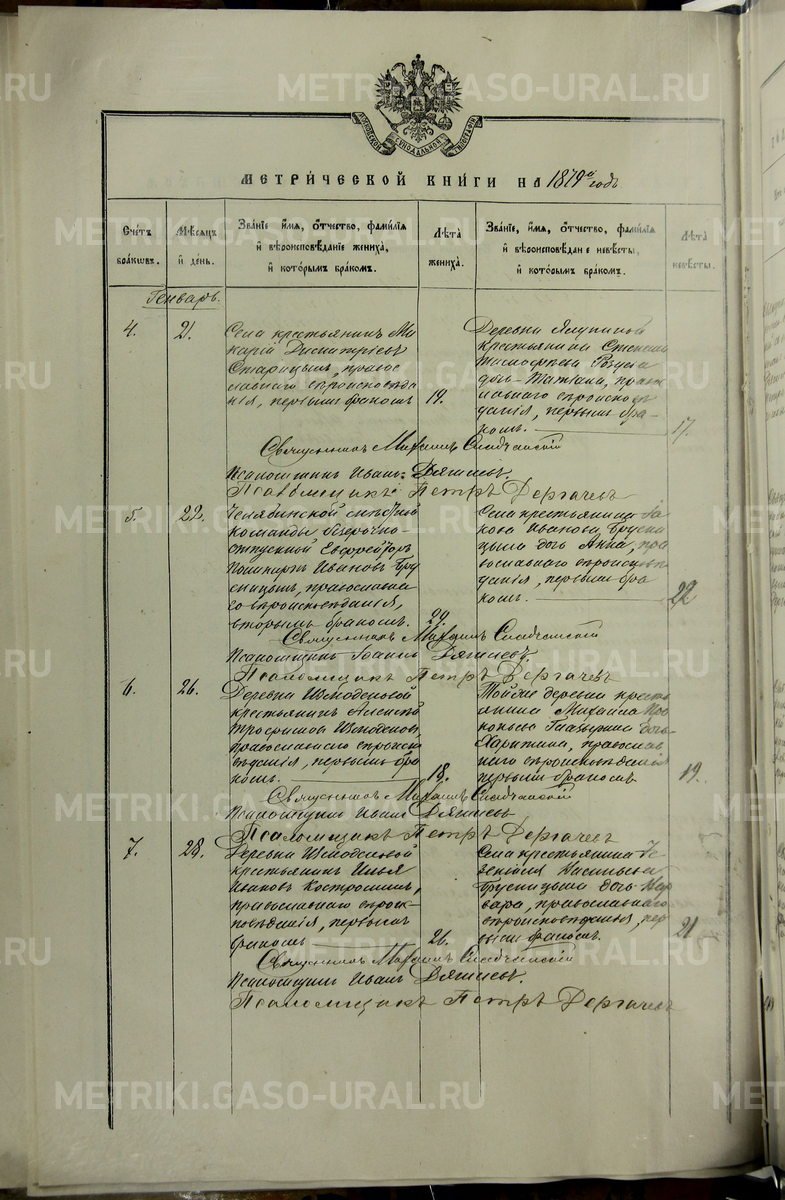 METRIKI.GASO-URAL.RU
МОСКОВСКОЙ СѴНОДАЛЬНОЙ ТИПОГРАФІИ
МЕТРИ́ЧЕСКОЙ КНИ́ГИ НА 1879й годъ
Сче́тъ бра́кѡвъ.
Мѣ́сяцъ и́ де́нь.
Зва́нїе, и́мя, ѻ҆́тчество, фами́лїя
и҆ вѣроисповѣ́данїе жениха̀,
и҆ кото́рымъ бра́комъ.
Лѣ́та жениха̀.
Зва́нїе, и́мя, ѻ҆́тчество, фами́лїя
и҆ вѣроисповѣ́данїе невѣ́сты,
и҆ кото́рымъ бра́комъ.
Лѣ́та невѣ́сты.
Генварь.
4.
21.
Села крестьянинъ Ма
карій Димитріевъ
Старицынъ, правос
лавнаго вѣроисповѣда
нія, первымъ бракомъ
19.
Деревни
крестьянина
дочь Татіана, право
славнаго вѣроисповѣ
данія, первымъ бра-
комъ.
17.
Священникъ Михаилъ
Псаломщикъ Иванъ Дягилевъ.
Псаломщикъ Петръ Дергачевъ
5.
22.
Челябинской
команды безсрочно-
отпускной Ефрейторъ
Ивановъ Бру
сницынъ, православна
го вѣроисповѣданія,
вторымъ бракомъ.
29.
Села крестьянина Іа
кова Иванова Брусни
цына дочь Анна, пра
вославнаго вѣроисповѣ
данія, первымъ бра
комъ.
22
Священникъ Михаилъ
Псаломщикъ Іоаннъ Дягилевъ.
Псаломщикъ Петръ Дергачевъ
6.
26.
Деревни Измоденовой
крестьянинъ Алексѣй
Трофимовъ Измоденовъ,
православнаго вѣроиспо
вѣданія, первымъ бра
комъ.
18.
Тойже деревни кресть
янина Михаила Про
копьева дочь
Харитина, православ
наго вѣроисповѣданія
первымъ бракомъ
19.
Священникъ Михаилъ
Псаломщикъ Иванъ Дягилевъ
Псаломщикъ Петръ Дергачевъ
7.
28.
Деревни Измоденовой
крестьянинъ Илья
Ивановъ Костроминъ,
православнаго вѣроис-
повѣданія, первымъ
бракомъ
26.
Села крестьянина Ев
генія Васильева
Брусницына дочь Вар
вара, православнаго
вѣроисповѣданія, пер
вымъ бракомъ.
21
Священникъ Михаилъ
Псаломщикъ Иванъ Дягилевъ.
Псаломщикъ Петръ Дергачевъ